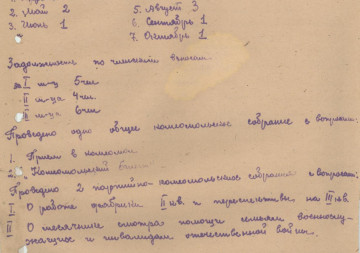 2. Май 2
3. Июнь 1
5. Август 3
6. Сентябрь 1
7. Октябрь 1
Задолженность по членским взносам.
за I м-ц 5 чел
II м-ца 4 чел.
м-ца 6 чел
Проведено одно общее комсомольское собрание с вопросами.
1. Прием в комсомол
2. Комсомольский
Проведено 2 партийно-комсомольские собрания с вопросами:
О работе фабрики II кв. и перспективы на III кв.
О месячнике смотра помощи семьям военнослу-
жащих и инвалидам отечественной войны.